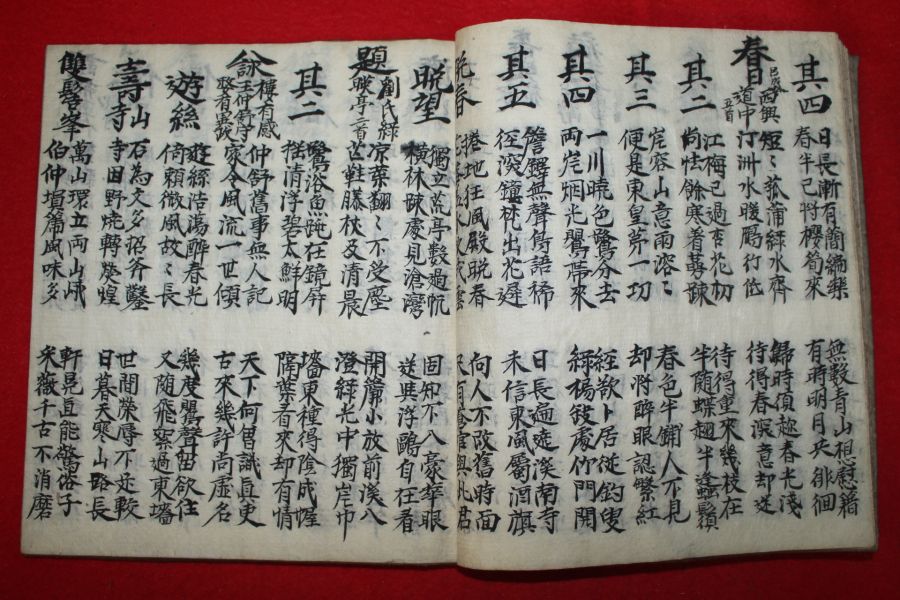 其四
日長漸有簡編樂
春半已將櫻筍來
無數青山相慰藉
有時明月共徘徊
春日西興道中五首
短〻菰蒲綠水齊
汀洲水暖鴈行低
歸時須趁春光淺
待得春深意却迷
其二
江梅已過杏花初
尚怯餘寒着萼疎
待得重來幾枝在
半隨蝶翅半蜂鬚
其三
崖容山意雨溶〻
便是東皇苐一功
春色半鋪人不見
却將醉眼認繁紅
其四
一川曉色鷺分去
兩崖烟光鸎帶來
經欲卜居從釣叟
綠楊缺處竹門開
其五
簷鐸無聲傳語稀
徑深鐘梵出花遲
日長遍遊溪南寺
未信東風屬酒旗
晩春
捲地狂風殿晩春
向人不改舊時面
只有蒼官與此君
晩望
獨立荒亭數過帆
橫林疎處見滄灣
固知不入豪華眼
送與浮鷗自在看
題劉氏綠映亭二首
凉葉翻〻不受塵
芒鞋藤杖及清晨
開簾小放前溪入
澄綠光中獨岸巾
其二
鷺浴魚跳在鏡
搖清浮碧太鮮明
墻東種得陰成幄
隔葉看來却有情
樓有感
仲舒舊事無人記
家令風流一世傾
天下何曾識眞吏
古來幾許尚虛名
遊絲
遊絲浩蕩醉春光
倚賴微風故〻長
幾度鸎聲留欲住
又隨飛絮過東墻
壽山寺
石為文多招斧鑿
寺因野燒轉熒煌
世間榮辱不足較
日暮天寒山路長
雙髻峯
萬山環立兩山峨
伯仲塤篪風味多
軒冕直能驚俗子
釆薇千古不消磨